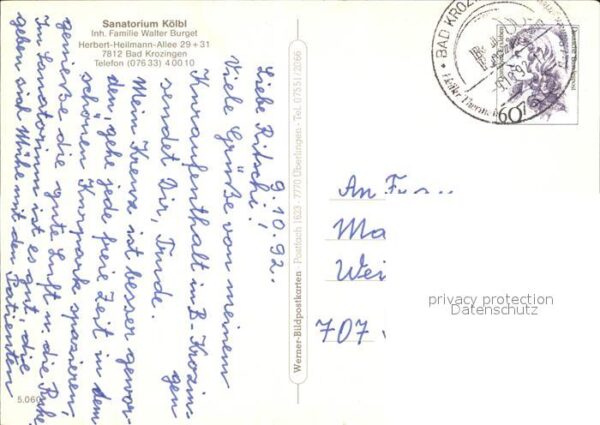 Sanatorium Kölbl
Inh. Familie Walter Burget
Herbert-Hellmann-Allee 29+31
7812 Bad Krozingen
Telefon (07633) 40010
9.10.92.
Liebe Ritschi!
Viele Grüße von meinem
Kuraufenthalt in B-Krozin-
gen
sendet Dir, Trude.
Mein Kreuz ist besser gewor-
den, gehe jede freie Zeit in dem
schönen Kurparke spazieren,
genieße die gute Luft u. die Ruhe.
Im Sanatorium ist es gut, die
geben sich Mühe mit den Patienten
5.060
Werner-Bildpostkarten · Postfach 1623 · 7770 Überlingen · Tel. 07551/2066
BAD KROZ
60
Deutsche Bundespost
An
Ma
Wei
707
privacy protection
Datenschutz